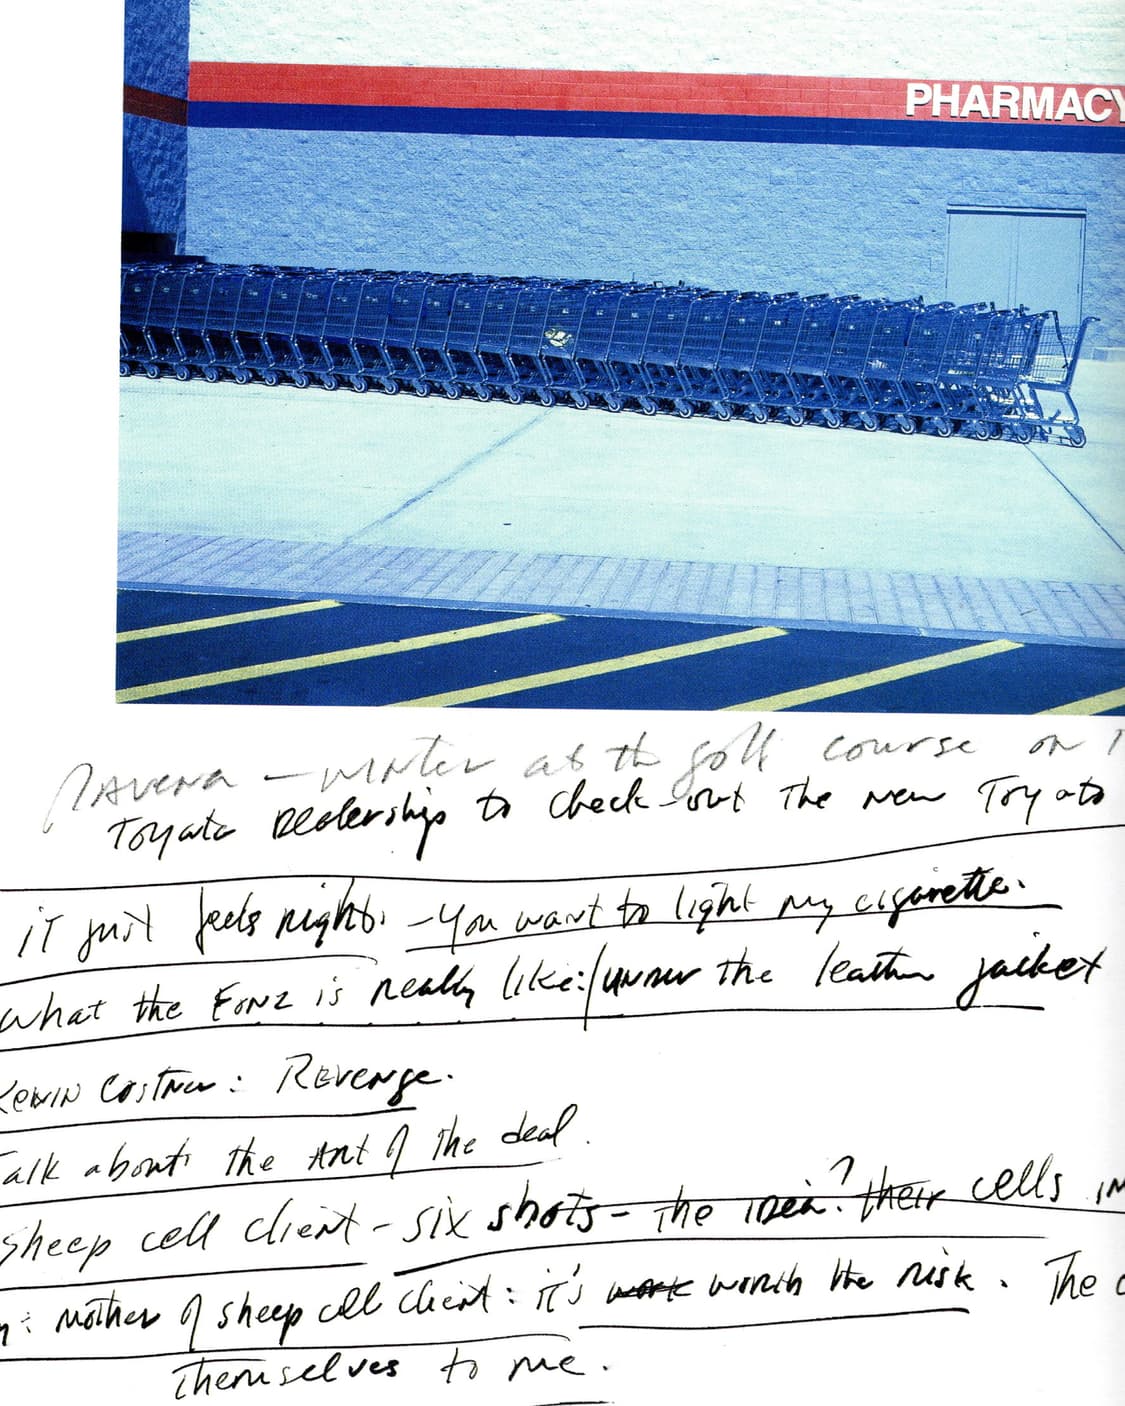 PHARMACY
Ravena – winter at the golf course on
Toyota Dealership to check-out the new Toyota
it just feels right. – You want to light my cigarette.
what the Fonz is really like:/under the leather jacket
Kevin Costner: Revenge.
Talk about the Art of the deal.
sheep cell client – six shots – the idea? their cells in
mother of sheep cell client: it's work worth the risk. The
themselves to me.